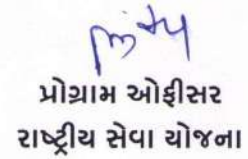 પ્રોગ્રામ ઓફીસર
રાષ્ટ્રીય સેવા યોજના